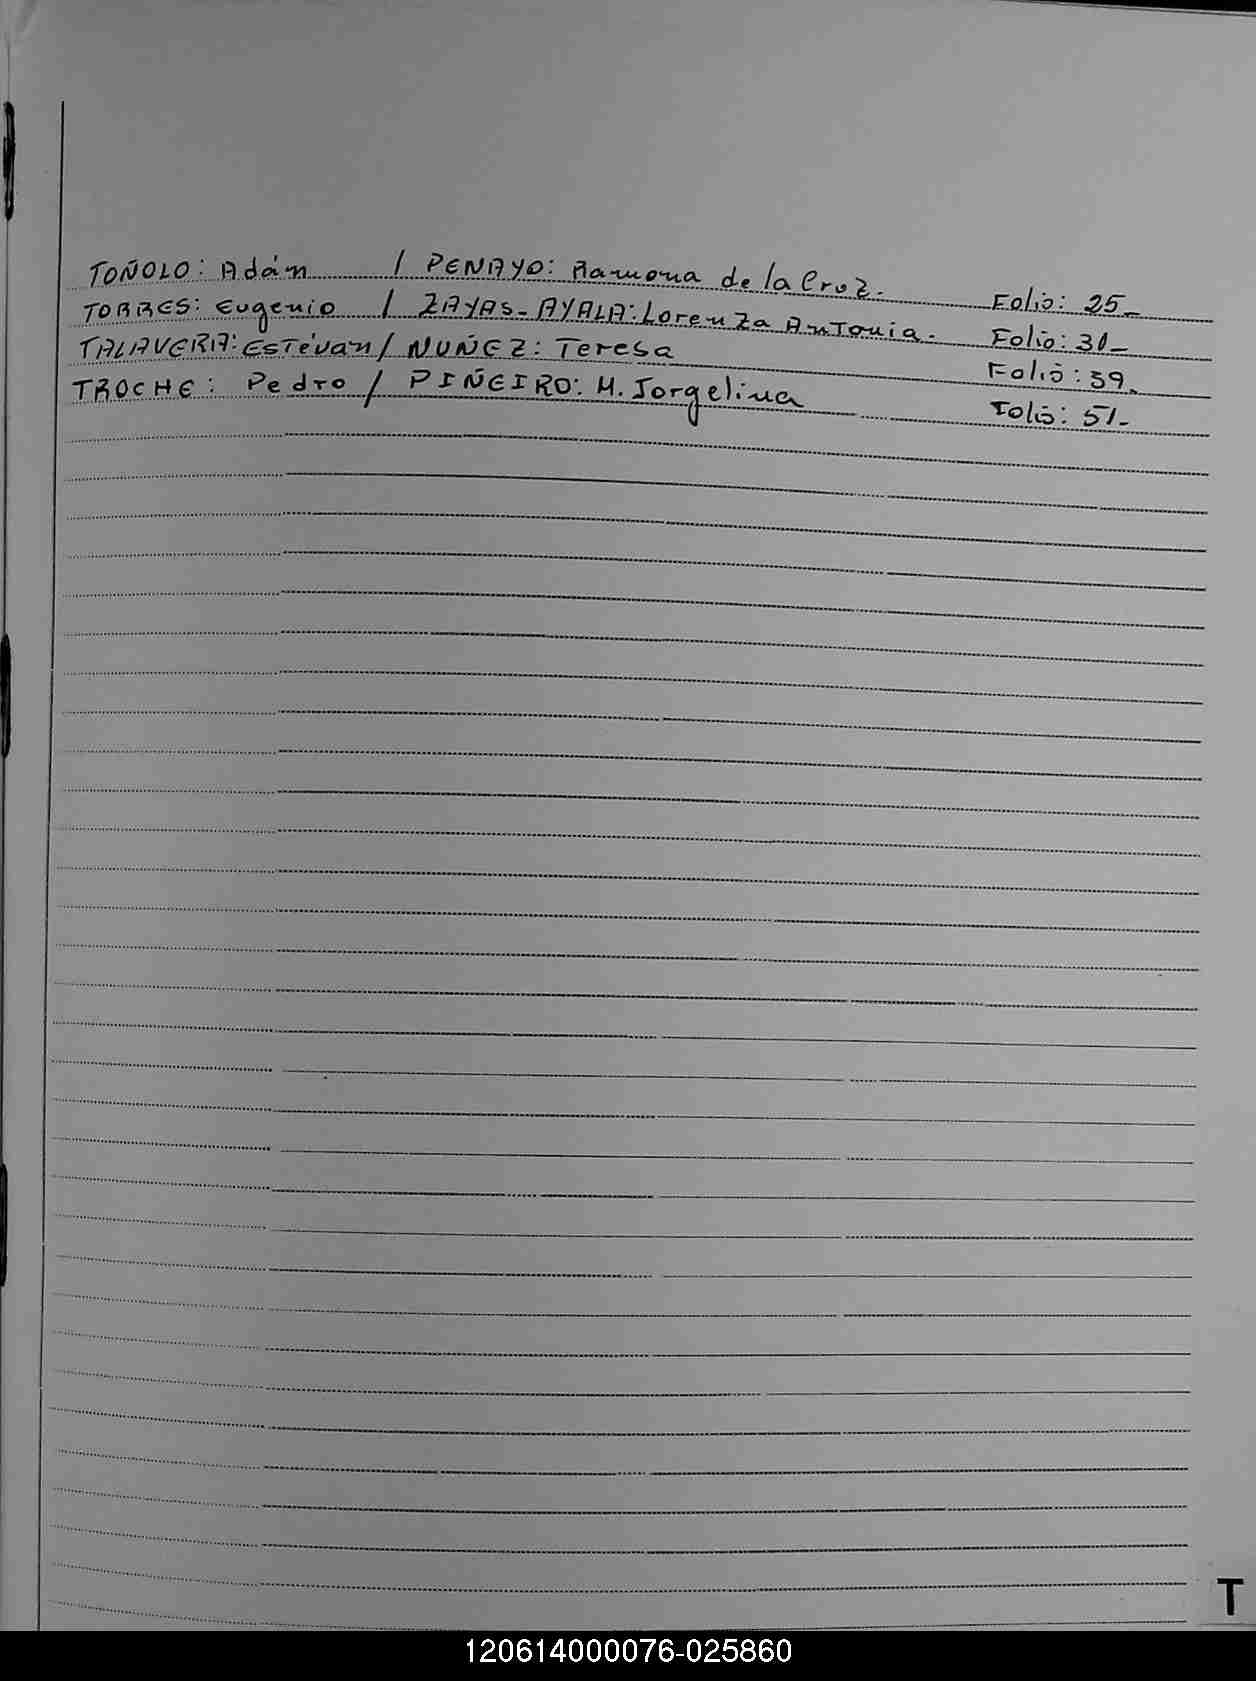 TOÑOLO: Adán / PENAYO: Ramona de la Cruz. Folio: 25_
TORRES: Eugenio / ZAYAS-AYALA: Lorenza Antonia. Folio: 30_
TALAVERA: Estévan / NUÑEZ: Teresa Folio: 39_
TROCHE: Pedro / PIÑEIRO: M. Jorgelina Folio: 51-
T
120614000076-025860